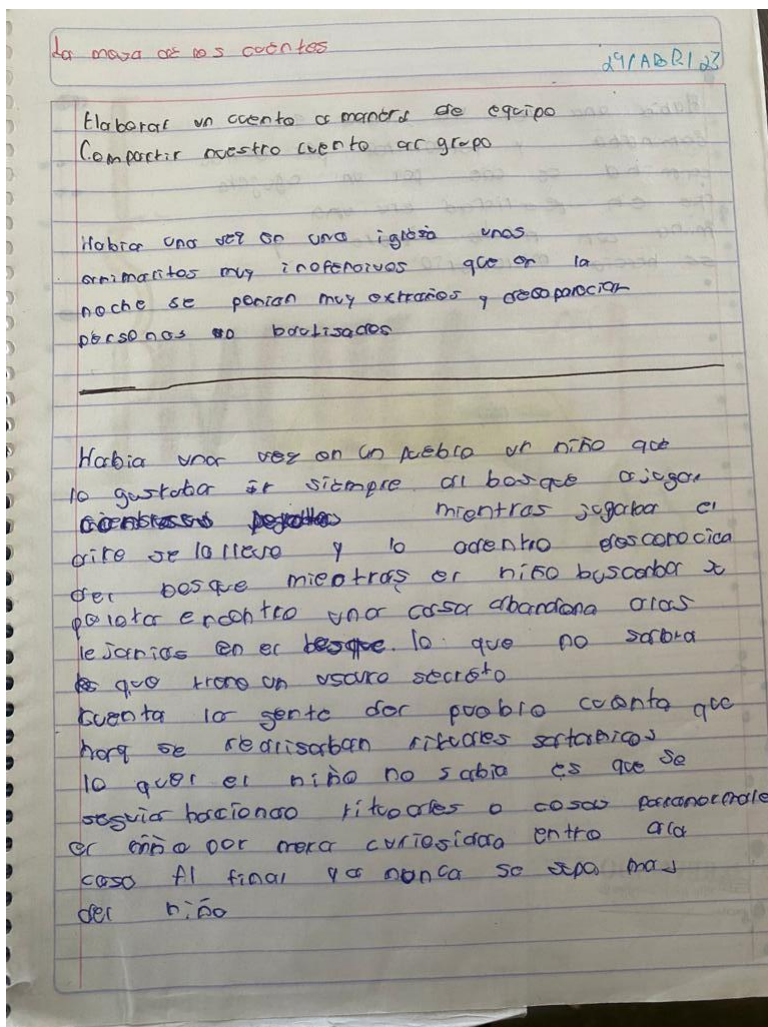 La masa de los cuentos
29/ABR/23
Elaborar un cuento a manera de equipo
Compartir nuestro cuento al grupo
Habia una vez en una iglesia unos
animalitos muy inofencivos que en la
noche se ponian muy extraños y desaparecian
personas no bautisados
Habia una vez en un pueblo un niño que
le gustaba ir siempre al bosque a jugar
mientras jugaba el
aire se la llevo y lo adentro desconocica
del bosque mientras el niño buscaba
pelota encontro una casa abandona alas
lejanias en el bosque. lo que no sabia
es que tiene un oscuro secreto
cuenta la gente del pueblo cuenta que
se realisaban rituales satanicos
lo que el niño no sabia es que se
seguia haciendo rituales o cosas paranormale
el niño por mera curiosidad entro ala
casa Al final ya nunca se supo mas
del niño